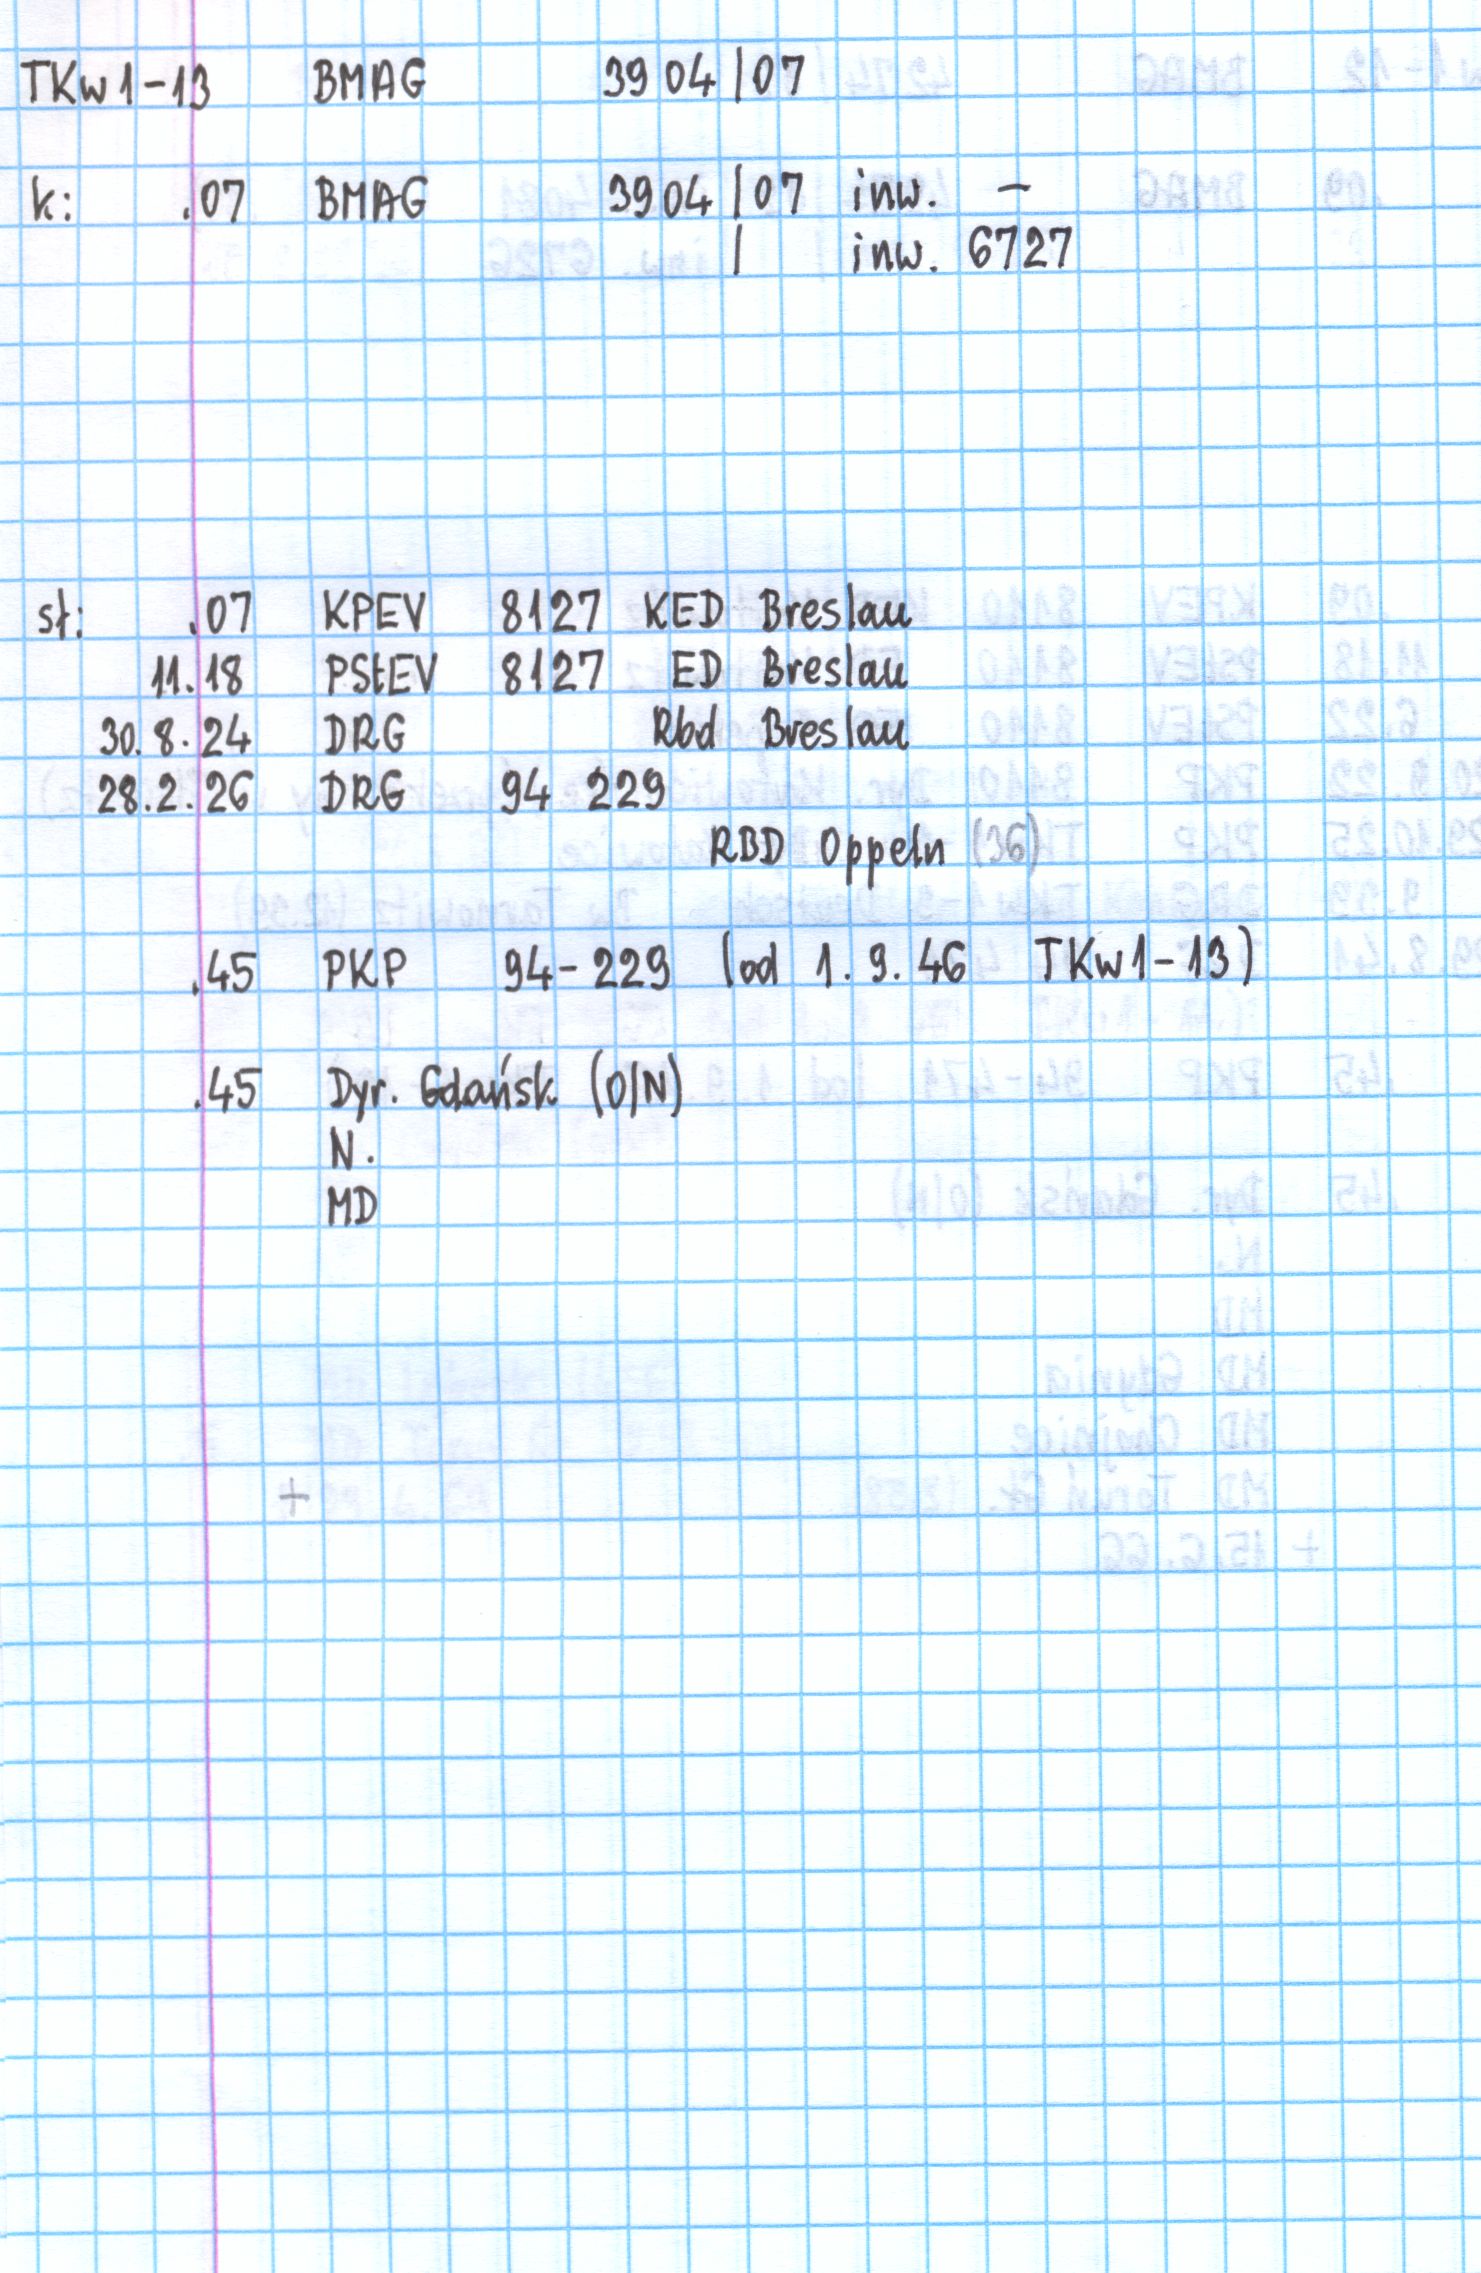 TKw1-13 BMAG 3904/07
k: .07 BMAG 3904/07 inw. –
/ inw. 6727
st: .07 KPEV 8127 KED Breslau
11.18 PStEV 8127 ED Breslau
30.8.24 DRG Rbd Breslau
28.2.26 DRG 94 229
RBD Oppeln (36)
.45 PKP 94-229 (od 1.9.46 TKw1-13)
.45 Dyr. Gdańsk (O/N)
N.
MD
+